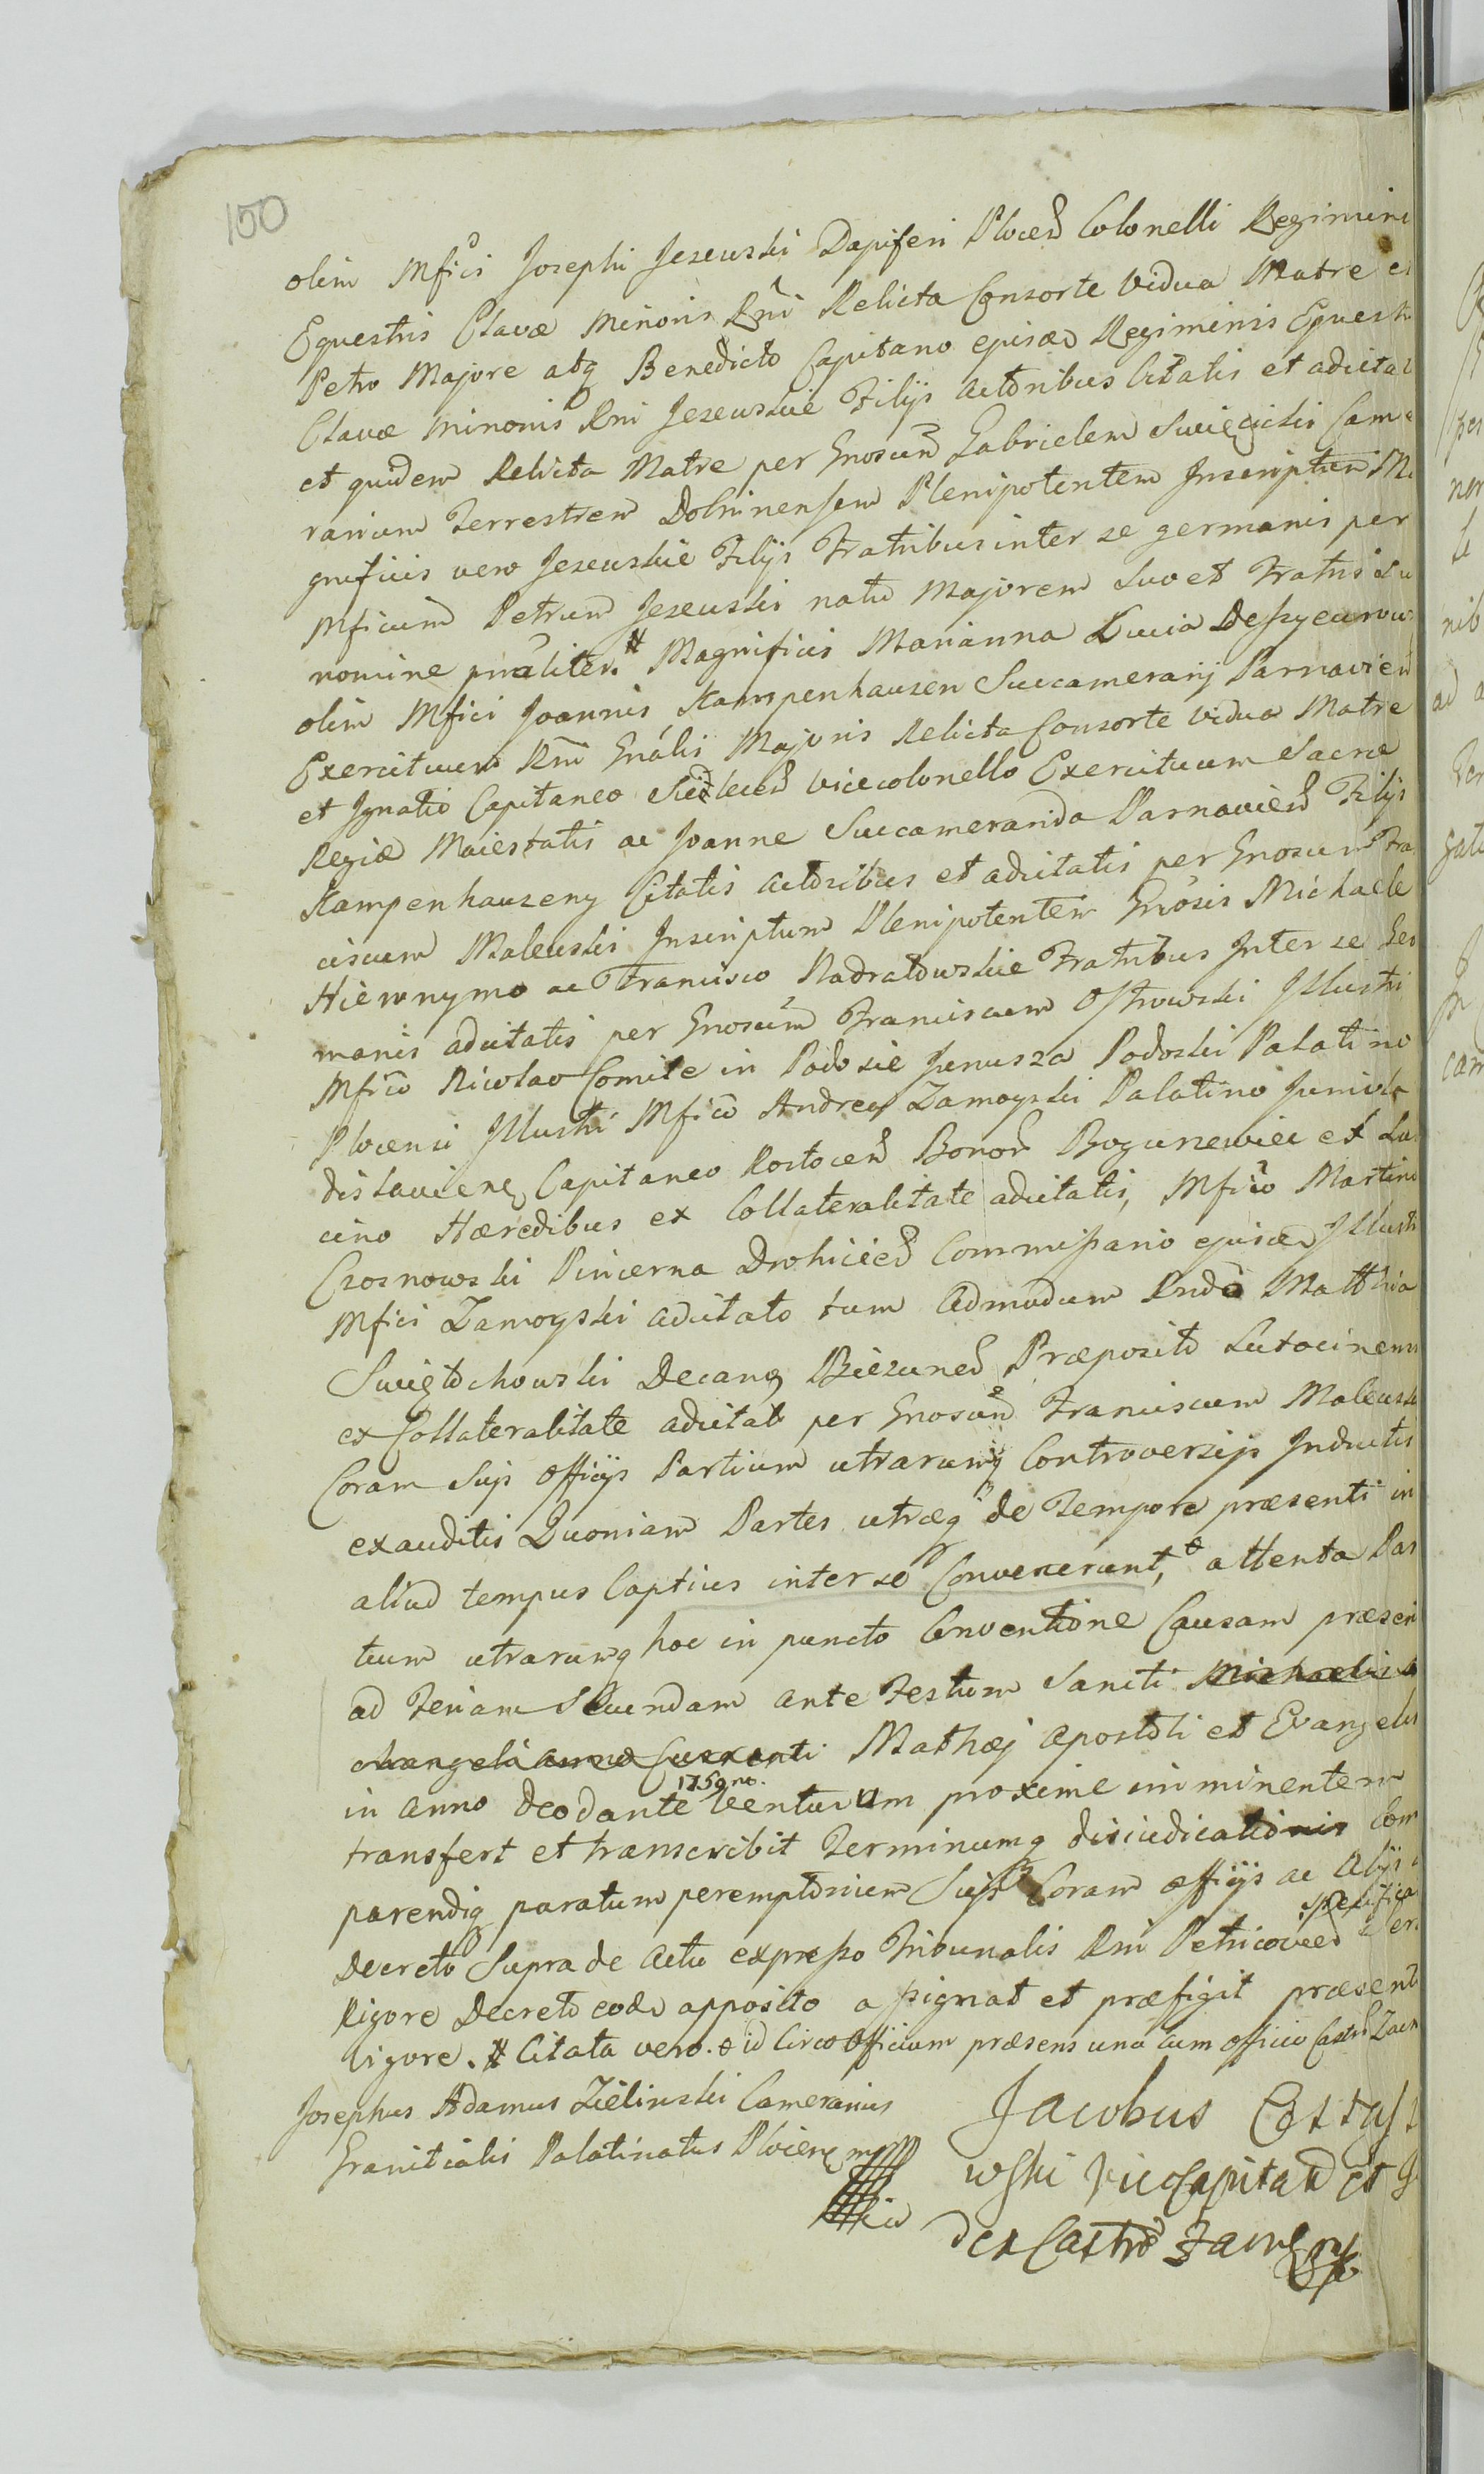 100
olim Mfici Josephi Jezewski Dapiferi Plocen Colonelli Regimini
Equestris Clavæ Minoris Rni Relicta Consorte Vidua Matre et
Petro Majore atq Benedicto Capitano ejusd Regiminis Equestr
Clavæ Minoris Rni Jezewskie Filijs Actoribus Citatis et adcitat
et quidem Relicta Matre per Gnosum Gabrielem Swięcicki Came
rarium Terrestrem Dobrinensem Plenipotentem Inscriptum Ma
gnificis vero Jezewskie Filijs Fratribus inter se germanis per
Mficum Petrum Jezewski natu Majorem suo et Fratris su
nomine pnaliter. # Magnificis Marianna Lucia Deszyeurow
olim Mfici Joannis Kampenhauzen Succamerarij Parnavien
Exercituum Rni Gnalis Majoris Relicta Consorte Vidua Matre
et Ignatio Capitaneo Vicecolonello Exercituum Sacræ
Regiæ Maiestatis ac Joanne Succameranida Parnavien Filijs
Kampenhauzeny Citatis Actoribus et adcitatis per Gnosum Fra
ciscum Malewski Inscriptum Plenipotentem Gnosis Michaele
Hieronymo ac Francisco Nadratowskie Fratribus Inter se Ger
manis adcitatis per Gnosum Franciscum Ostrowski Illustri
Mfico Nicolao Comite in Podosie Junosza Podoski Palatino
Plocensi Illustri Mfico Andrea Zamoyski Palatino Junivla
dislavien Capitaneo Rostocen Bonor Bogurzewiec et Lu
cino Hæredibus ex Collateralitate adcitatis, Mfico Martino
Czosnowski Pincerna Drohicien Commissario ejusd Illustr
Mfici Zamoyski adcitato tum Admodum Rndo Matthia
Swiętochowski Decano Biezunen Præposito Lutocinensi
ex Collateralitate adcitato per Gnosum Franciscum Malewski
Coram Sujs Officijs Partium utrarumq Controversijs Inductis
exauditis Quoniam Partes utræq de Tempore præsenti in
aliud tempus Captius inter se Convenerunt, attenta Par
tium utrarumq hoc in puncto Conventione Causam præsen
ad Feriam Secundam ante Festum Sancti Michaelis A
rchangeli anno Currenti Mathæj Apostoli et Evangelis
in Anno Deo dante 1759no. venturum proxime imminentem
transfert et transcribit Terminumq disiudicationis Com
parendiq paratum peremptorium Sujs Coram officijs ac Alijs
Decreto Supra de Actu expresso Tribunalis Rni Petricovien specifica
Rigore Decreto eod apposito assignat et præfigit præsent
vigore. # Citata vero. id Circo Officium præsens una cum officio Castr Zacr
Josephus Adamus Zieliński Camerarius
Granitialis Palatinatus Plocien mp
Jacobus
wski ViceCapitan et Ju
dex Castr Zacr mp